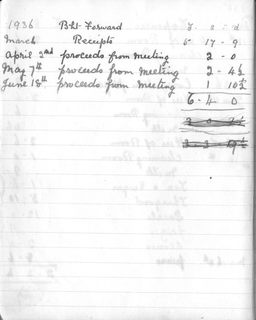 1936 Bht Forward £ s d
March Receipts 5 - 17 - 9
April 2nd proceeds from meeting 2 - 0
May 7th proceeds from Meeting 2 - 4½
June 18th proceeds from meeting 1 10½
6 - 4 0